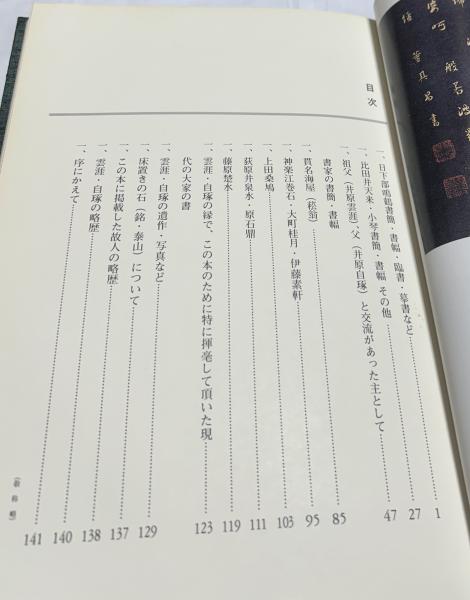 目次
一、日下部鳴鶴書簡・書幅・臨書・墓書など 1
一、比田井天来・小琴書簡・書幅 その他 27
一、祖父（井原雲涯）、父（井原自琢）と交流があった主として
書家の書簡・書幅 47
一、貫名海屋（菘翁） 85
一、神楽江巻石・大町桂月・伊藤素軒 95
一、上田桑鳩 103
一、荻原井泉水・原石鼎 111
一、藤原楚水 119
一、雲涯・自琢の縁で、この本のために特に揮毫して頂いた現
代の大家の書 123
一、雲涯・自琢の遺作・写真など 129
一、床置きの石（銘・泰山）について 137
一、この本に掲載した故人の略歴 138
一、雲涯・自琢の略歴 140
一、序にかえて 141
（敬称略）
般若波